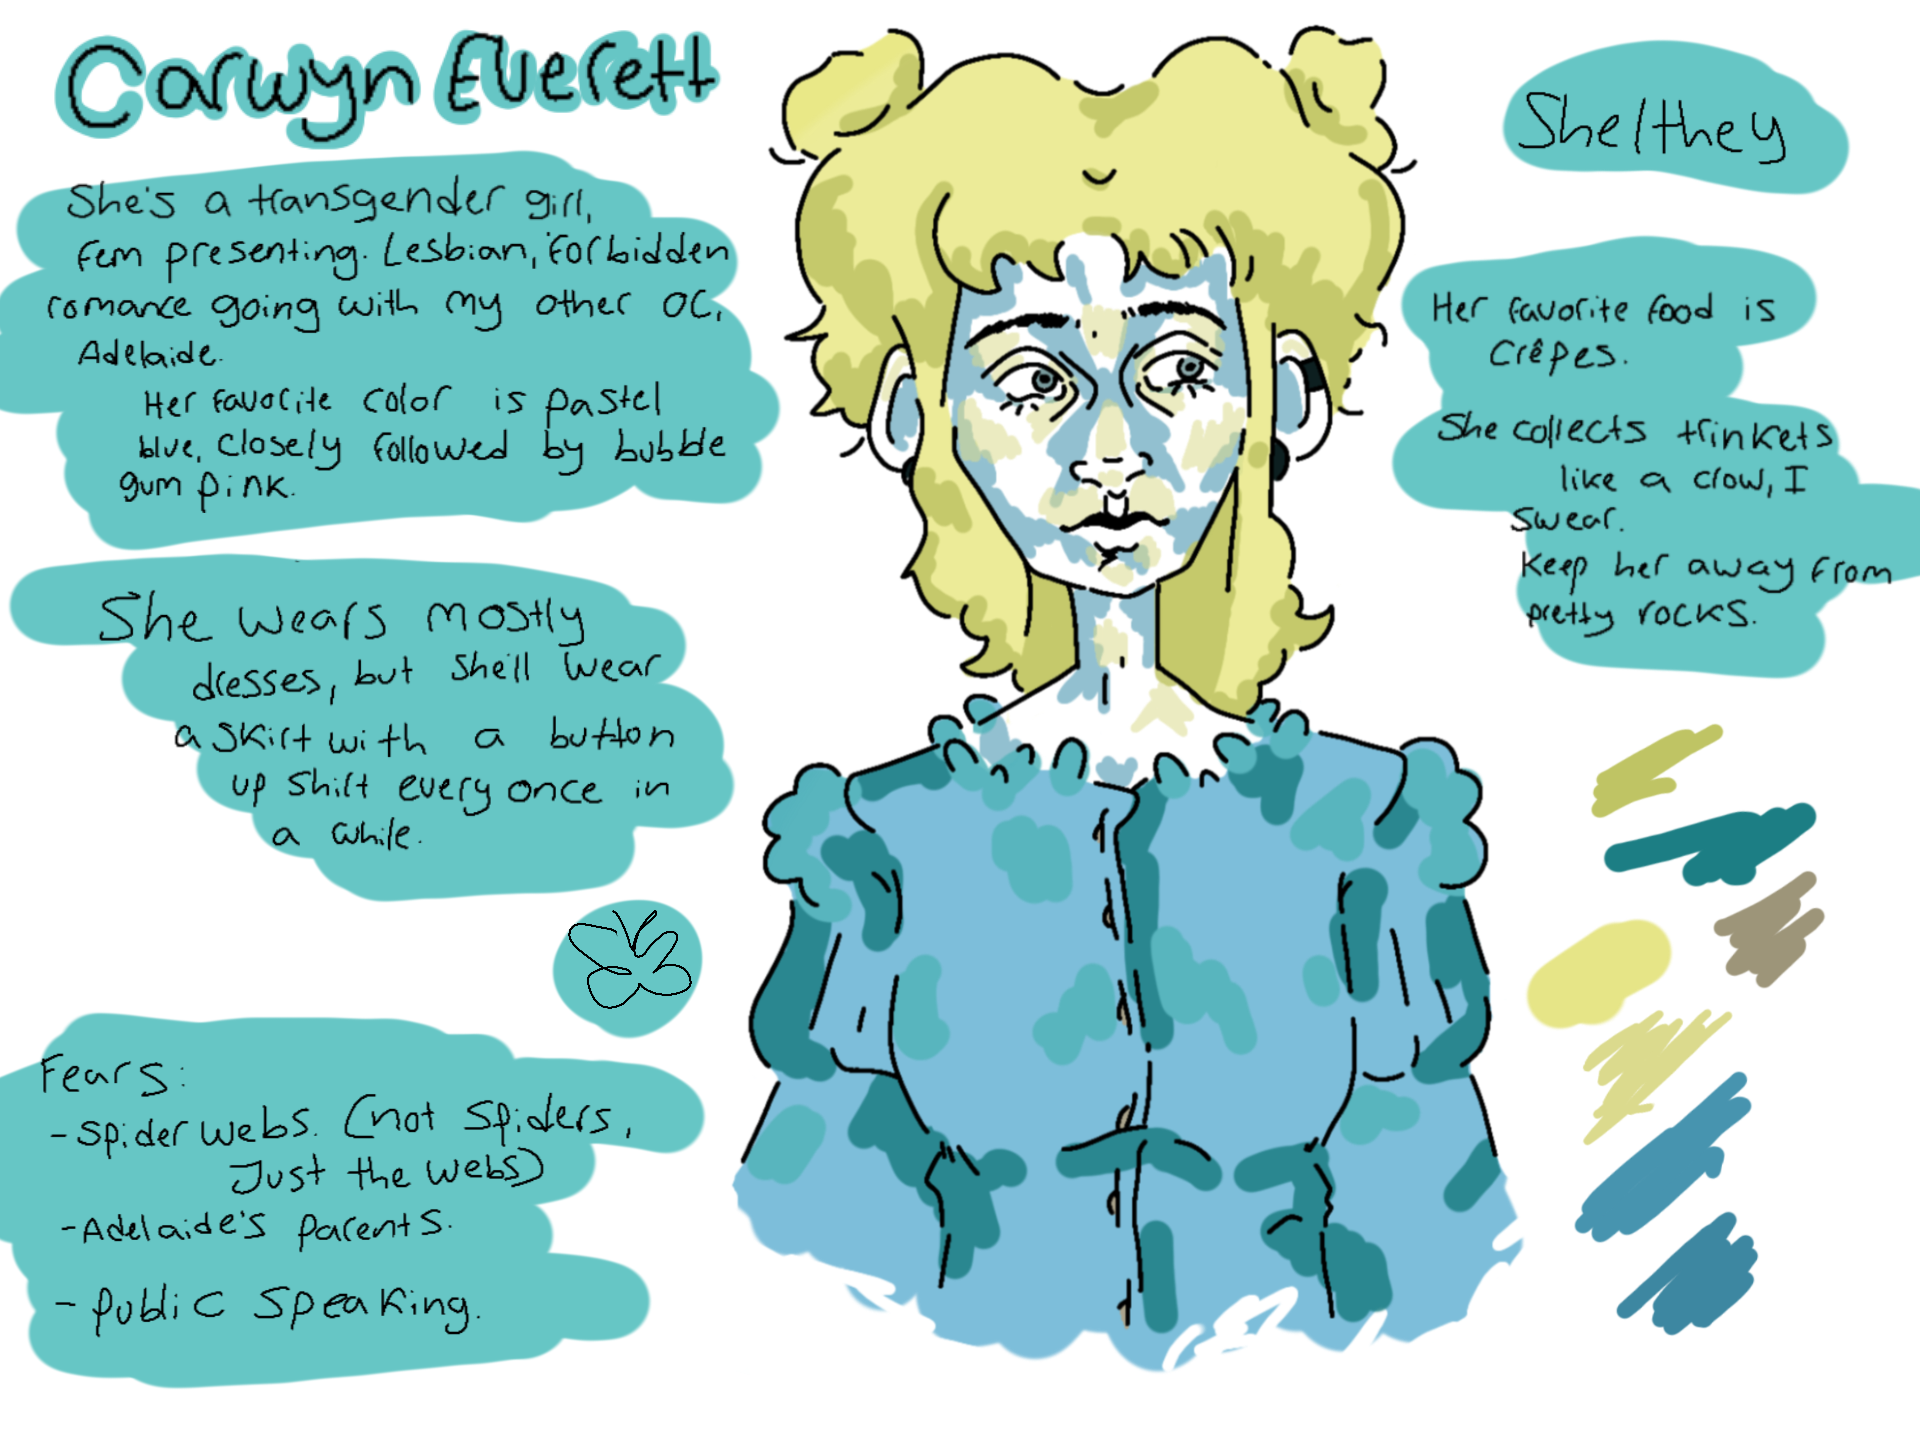 Carwyn Everett
She's a transgender girl,
fem presenting. Lesbian, forbidden
romance going with my other OC,
Adelaide.
Her favorite color is pastel
blue, closely followed by bubble
gum pink.
She wears mostly
dresses, but she'll wear
a skirt with a button
up shirt every once in
a while.
Fears:
- Spider webs. (not spiders,
Just the webs)
- Adelaide's parents.
- public speaking.
She/they
Her favorite food is
crêpes.
She collects trinkets
like a crow, I
swear.
Keep her away from
pretty rocks.